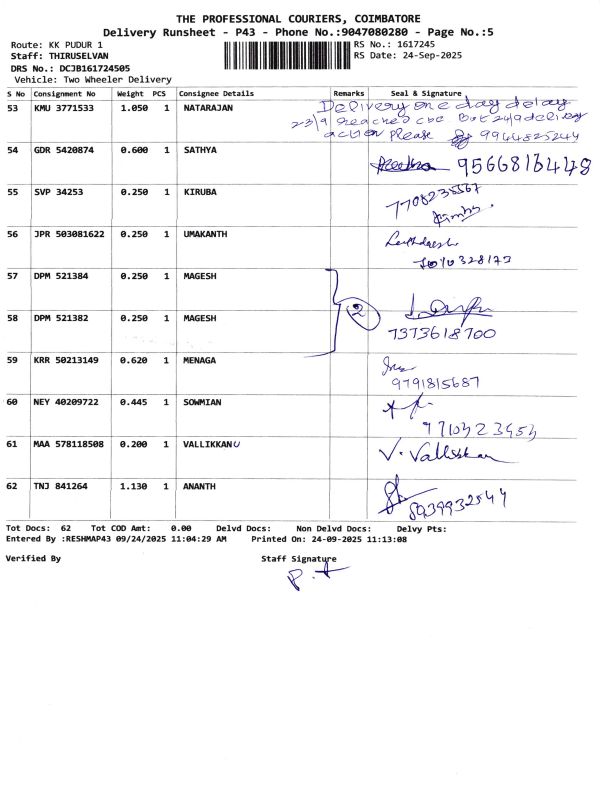 THE PROFESSIONAL COURIERS, COIMBATORE
Delivery Runsheet - P43 - Phone No.:9047080280 - Page No.:5
Route: KK PUDUR 1 RS No.: 1617245
Staff: THIRUSELVAN RS Date: 24-Sep-2025
DRS No.: DCJB161724505
Vehicle: Two Wheeler Delivery
S No Consignment No Weight PCS Consignee Details Remarks Seal & Signature
53 KMU 3771533 1.050 1 NATARAJAN Delivery one day delay
23/9 reached cbe But 24/9 delivery
action please 9944825244
54 GDR 5420874 0.600 1 SATHYA 9566816448
55 SVP 34253 0.250 1 KIRUBA 7708235567
56 JPR 503081622 0.250 1 UMAKANTH
57 DPM 521384 0.250 1 MAGESH
2
58 DPM 521382 0.250 1 MAGESH 7373618700
59 KRR 50213149 0.620 1 MENAGA
9791815687
60 NEY 40209722 0.445 1 SOWMIAN
61 MAA 578118508 0.200 1 VALLIKKANU V. Vallikkan
62 TNJ 841264 1.130 1 ANANTH 8939932544
Tot Docs: 62 Tot COD Amt: 0.00 Delvd Docs: Non Delvd Docs: Delvy Pts:
Entered By :RESHMAP43 09/24/2025 11:04:29 AM Printed On: 24-09-2025 11:13:08
Verified By Staff Signature